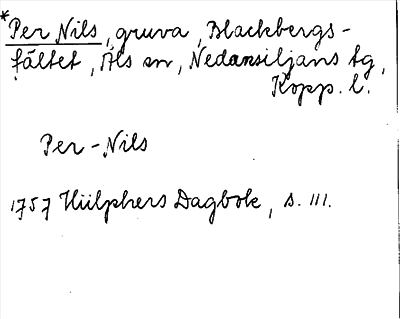 *Per Nils, gruva, Blackbergs-
fältet, Åls sn, Nedansiljans tg,
Kopp. l.
Per-Nils
1757 Hülphers Dagbok, s. 111.